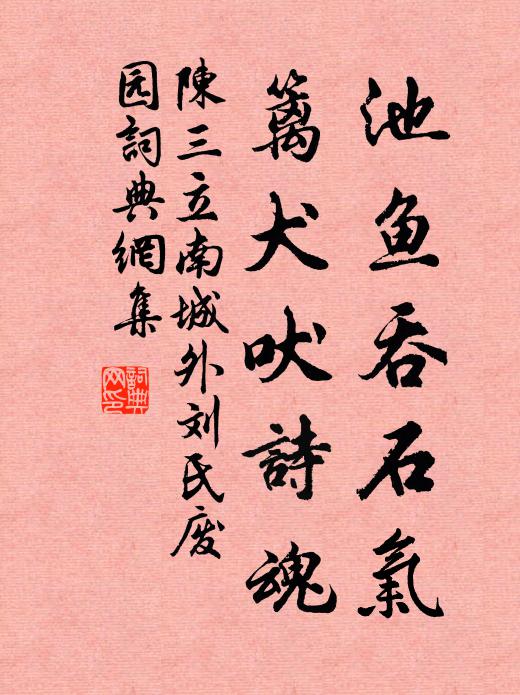 池鱼吞石氣
篱犬吠詩魂
陳三立南城外刘氏废
园詞典網集
詞典网印